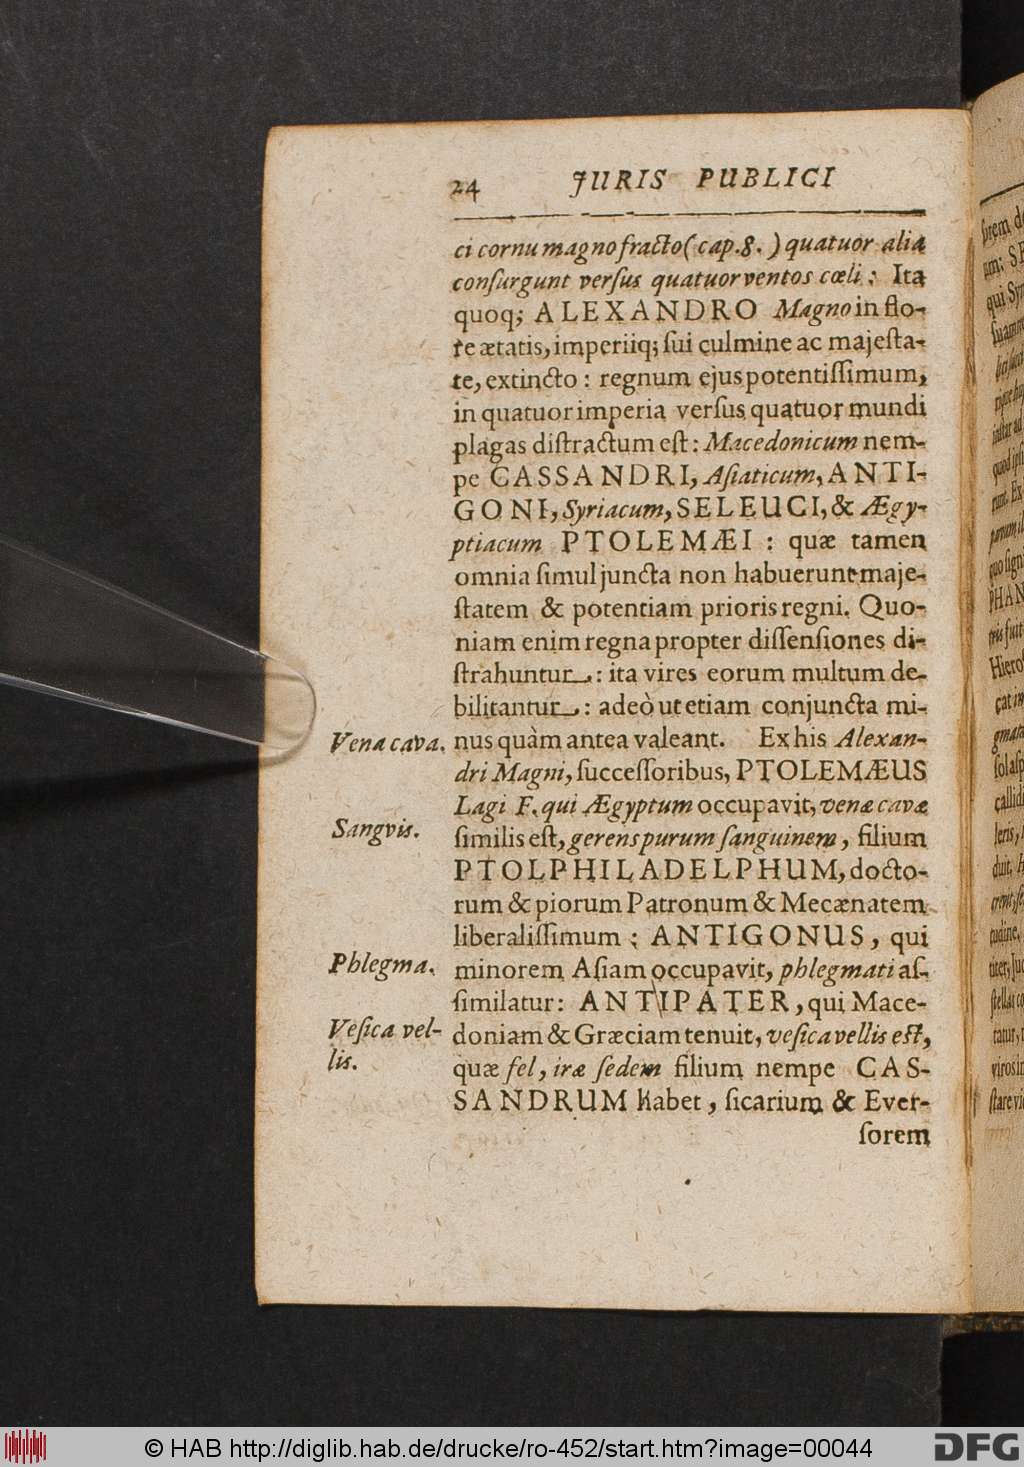 24 JURIS PUBLICI
ci cornu magno fracto (cap. 8. ) quatuor alia
conſurgunt verſus quatuor ventos cœli : Ita
quoq; ALEXANDRO Magno in flo-
re ætatis, imperiiq; ſui culmine ac majeſta-
te, extincto : regnum ejus potentiſſimum,
in quatuor imperia verſus quatuor mundi
plagas diſtractum eſt : Macedonicum nem-
pe CASSANDRI, Aſiaticum, ANTI-
GONI, Syriacum, SELEUCI, & Ægy-
ptiacum PTOLEMÆI : quæ tamen
omnia ſimul juncta non habuerunt maje-
ſtatem & potentiam prioris regni. Quo-
niam enim regna propter diſſenſiones di-
ſtrahuntur : ita vires eorum multum de-
bilitantur : adeò ut etiam conjuncta mi-
Vena cava. nus quàm antea valeant. Ex his Alexan-
dri Magni, ſucceſſoribus, PTOLEMÆUS
Lagi F. qui Ægyptum occupavit, venæ cavæ
Sangvis. ſimilis eſt, gerens purum ſanguinem, filium
PTOLPHILADELPHUM, docto-
rum & piorum Patronum & Mecænatem
liberaliſſimum ; ANTIGONUS, qui
Phlegma. minorem Aſiam occupavit, phlegmati aſ-
ſimilatur : ANTIPATER, qui Mace-
Veſica vel- doniam & Græciam tenuit, veſica vellis eſt,
lis. quæ fel, iræ ſedem filium nempe CAS-
SANDRUM habet, ſicarium & Ever-
ſorem
© HAB http://diglib.hab.de/drucke/ro-452/start.htm?image=00044
DFG